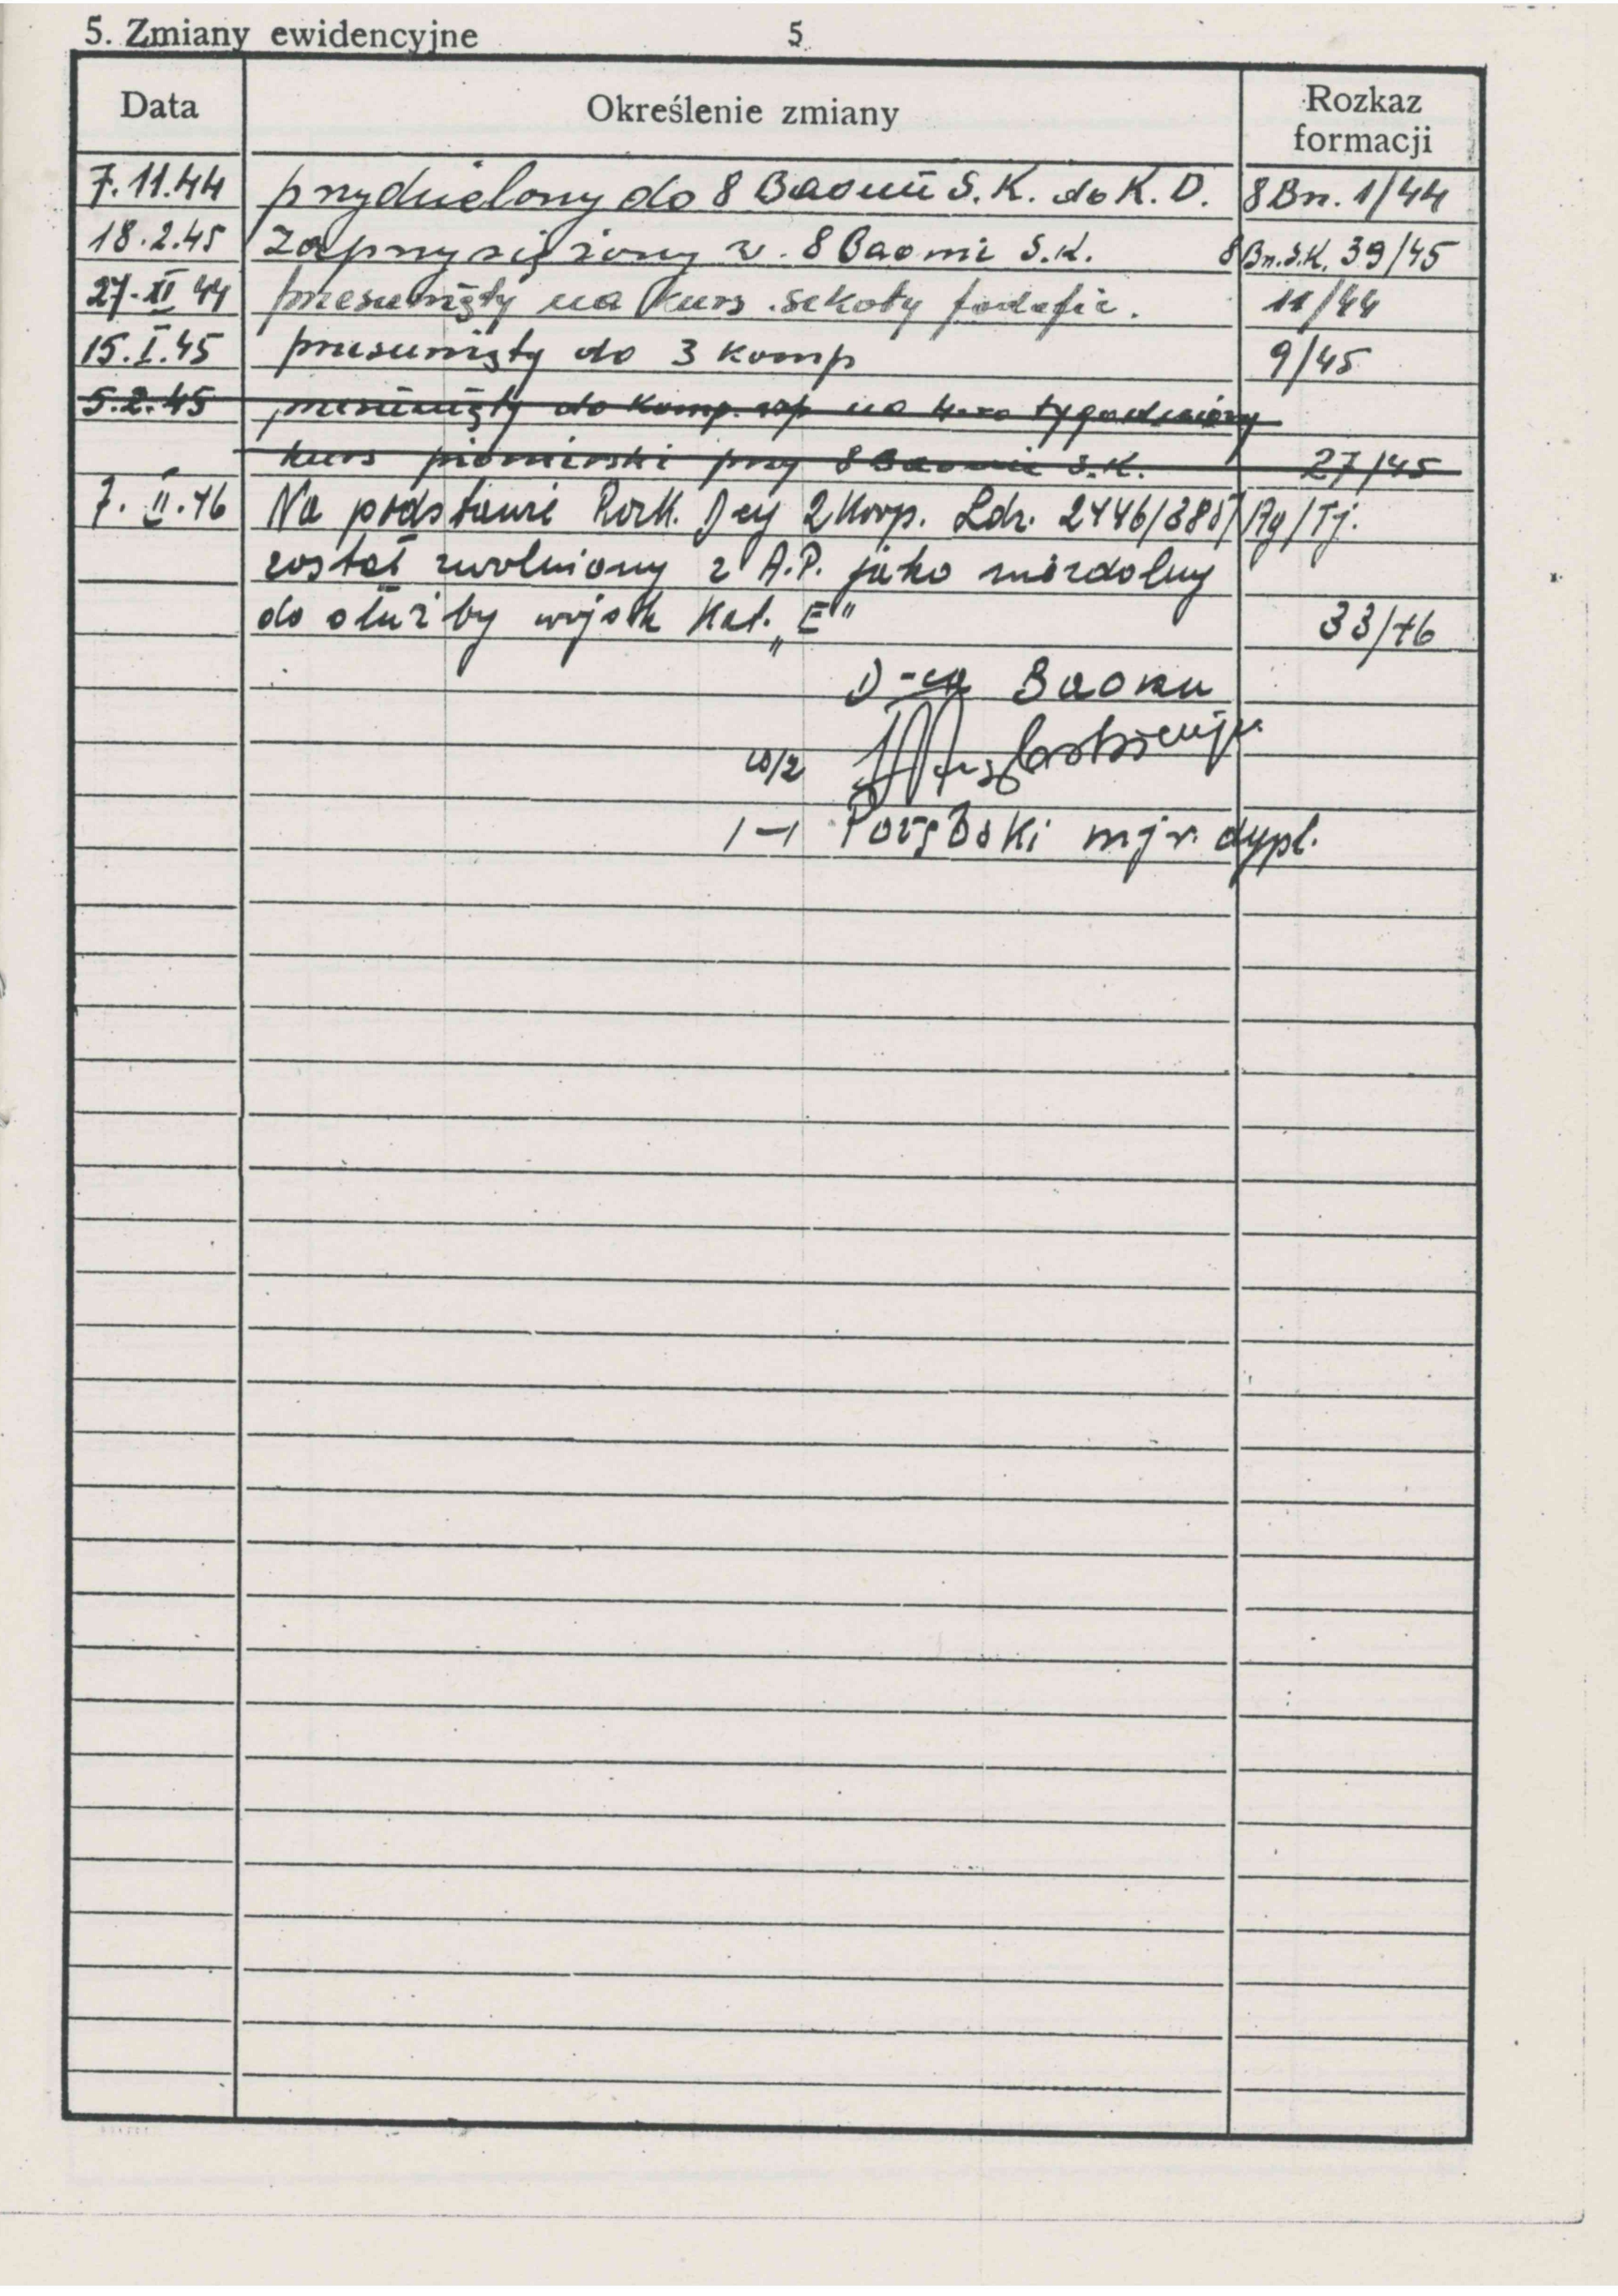 5. Zmiany ewidencyjne 5
Data Określenie zmiany Rozkaz formacji
7.11.44 przydzielony do 8 Baonu S.K. do K.D. 8 Bn. 1/44
18.2.45 Zaprzysiężony w 8 Baonie S.K. 8 Bn.S.K. 39/45
27.XI 44 przesunięty na kurs szkoły podofic. 11/44
15.I.45 przesunięty do 3 komp 9/45
5.2.45 przesunięty do komp. wsp na 4-ro tygodniowy
kurs pionierski przy 8 Baonie S.K. 27/45
7.II.46 Na podstawie Rozk. Dcy 2 Korp. Ldz. 2446/385/Ag/Tj.
został zwolniony z A.P. jako niezdolny
do służby wojsk Kat. „E" 33/46
D-ca Baonu
w/z
/-/ Porębski mjr. dypl.